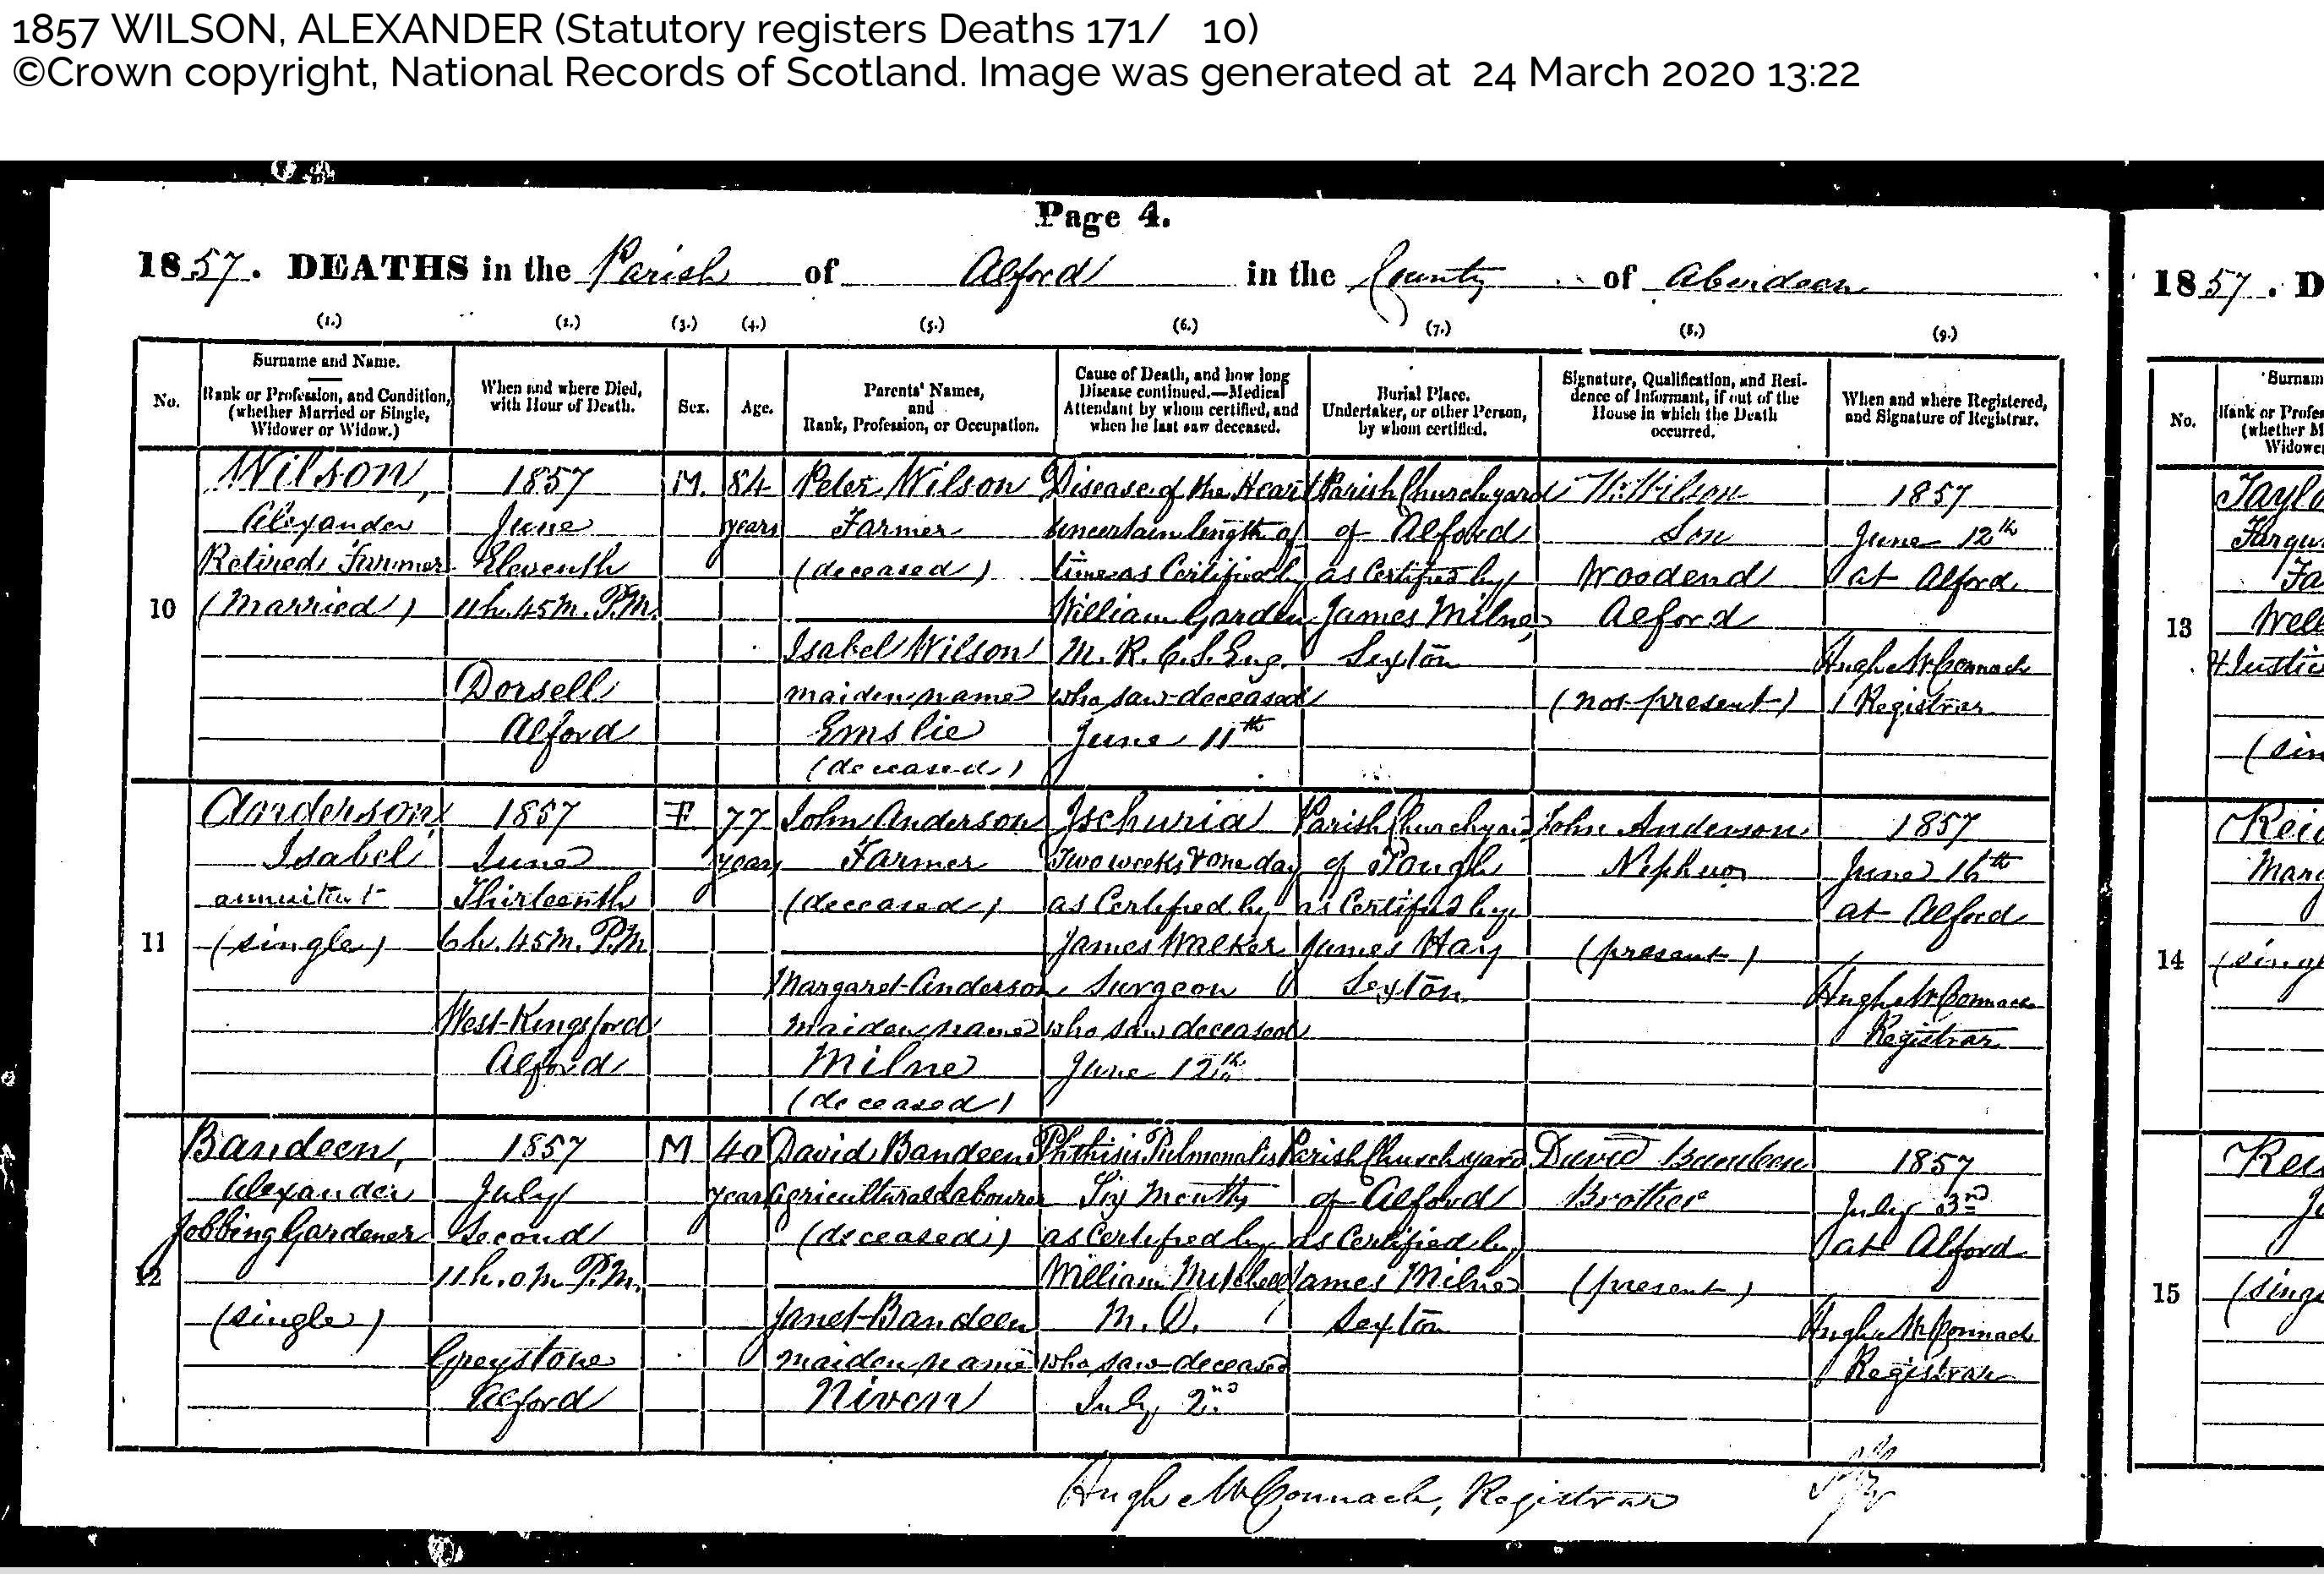 1857 WILSON, ALEXANDER (Statutory registers Deaths 171/ 10)
©Crown copyright, National Records of Scotland. Image was generated at 24 March 2020 13:22
Page 4.
1857. DEATHS in the Parish of Alford in the County of Aberdeen
(1.) (2.) (3.) (4.) (5.) (6.) (7.) (8.) (9.)
No.
Surname and Name.
Rank or Profession, and Condition,
(whether Married or Single,
Widower or Widow.)
When and where Died,
with Hour of Death.
Sex.
Age.
Parents' Names,
and
Rank, Profession, or Occupation.
Cause of Death, and how long
Disease continued.—Medical
Attendant by whom certified, and
when he last saw deceased.
Burial Place.
Undertaker, or other Person,
by whom certified.
Signature, Qualification, and Resi-
dence of Informant, if out of the
House in which the Death
occurred.
When and where Registered,
and Signature of Registrar.
10
Wilson,
Alexander
Retired Farmer
(Married)
1857
June
Eleventh
11h. 45m. P.M.
Dorsell
Alford
M.
84
years
Peter Wilson
Farmer
(deceased)
Isabel Wilson
maiden name
Emslie
(deceased)
Disease of the Heart
uncertain length of
time as Certified by
William Garden
M. R. C. S. Eng.
who saw deceased
June 11th
Parish Churchyard
of Alford
as Certified by
James Milne
Sexton
Wilson
Son
Woodend
Alford
(not present)
1857
June 12th
at Alford
Hugh McConnach
Registrar
11
Anderson
Isabel
annuitant
(single)
1857
June
Thirteenth
6h. 45m. P.M.
West Kingsford
Alford
F
77
years
John Anderson
Farmer
(deceased)
Margaret Anderson
maiden name
Milne
(deceased)
Ischuria
Two weeks & one day
as Certified by
James Walker
Surgeon
who saw deceased
June 12th
Parish Churchyard
of Tough
as Certified by
James Hay
Sexton
John Anderson
Nephew
(present)
1857
June 16th
at Alford
Hugh McConnach
Registrar
12
Bandeen,
Alexander
Jobbing Gardener
(single)
1857
July
Second
11h. 0m. P.M.
Greystone
Alford
M
40
years
David Bandeen
Agricultural Labourer
(deceased)
Janet Bandeen
maiden name
Niven
Phthisis Pulmonalis
Six Months
as Certified by
William Mitchell
M. D.
who saw deceased
July 2nd
Parish Churchyard
of Alford
as Certified by
James Milne
Sexton
David
Brother
(present)
1857
July 3rd
at Alford
Hugh McConnach
Registrar
Hugh McConnach, Registrar
1857. D
No.
13
14
15